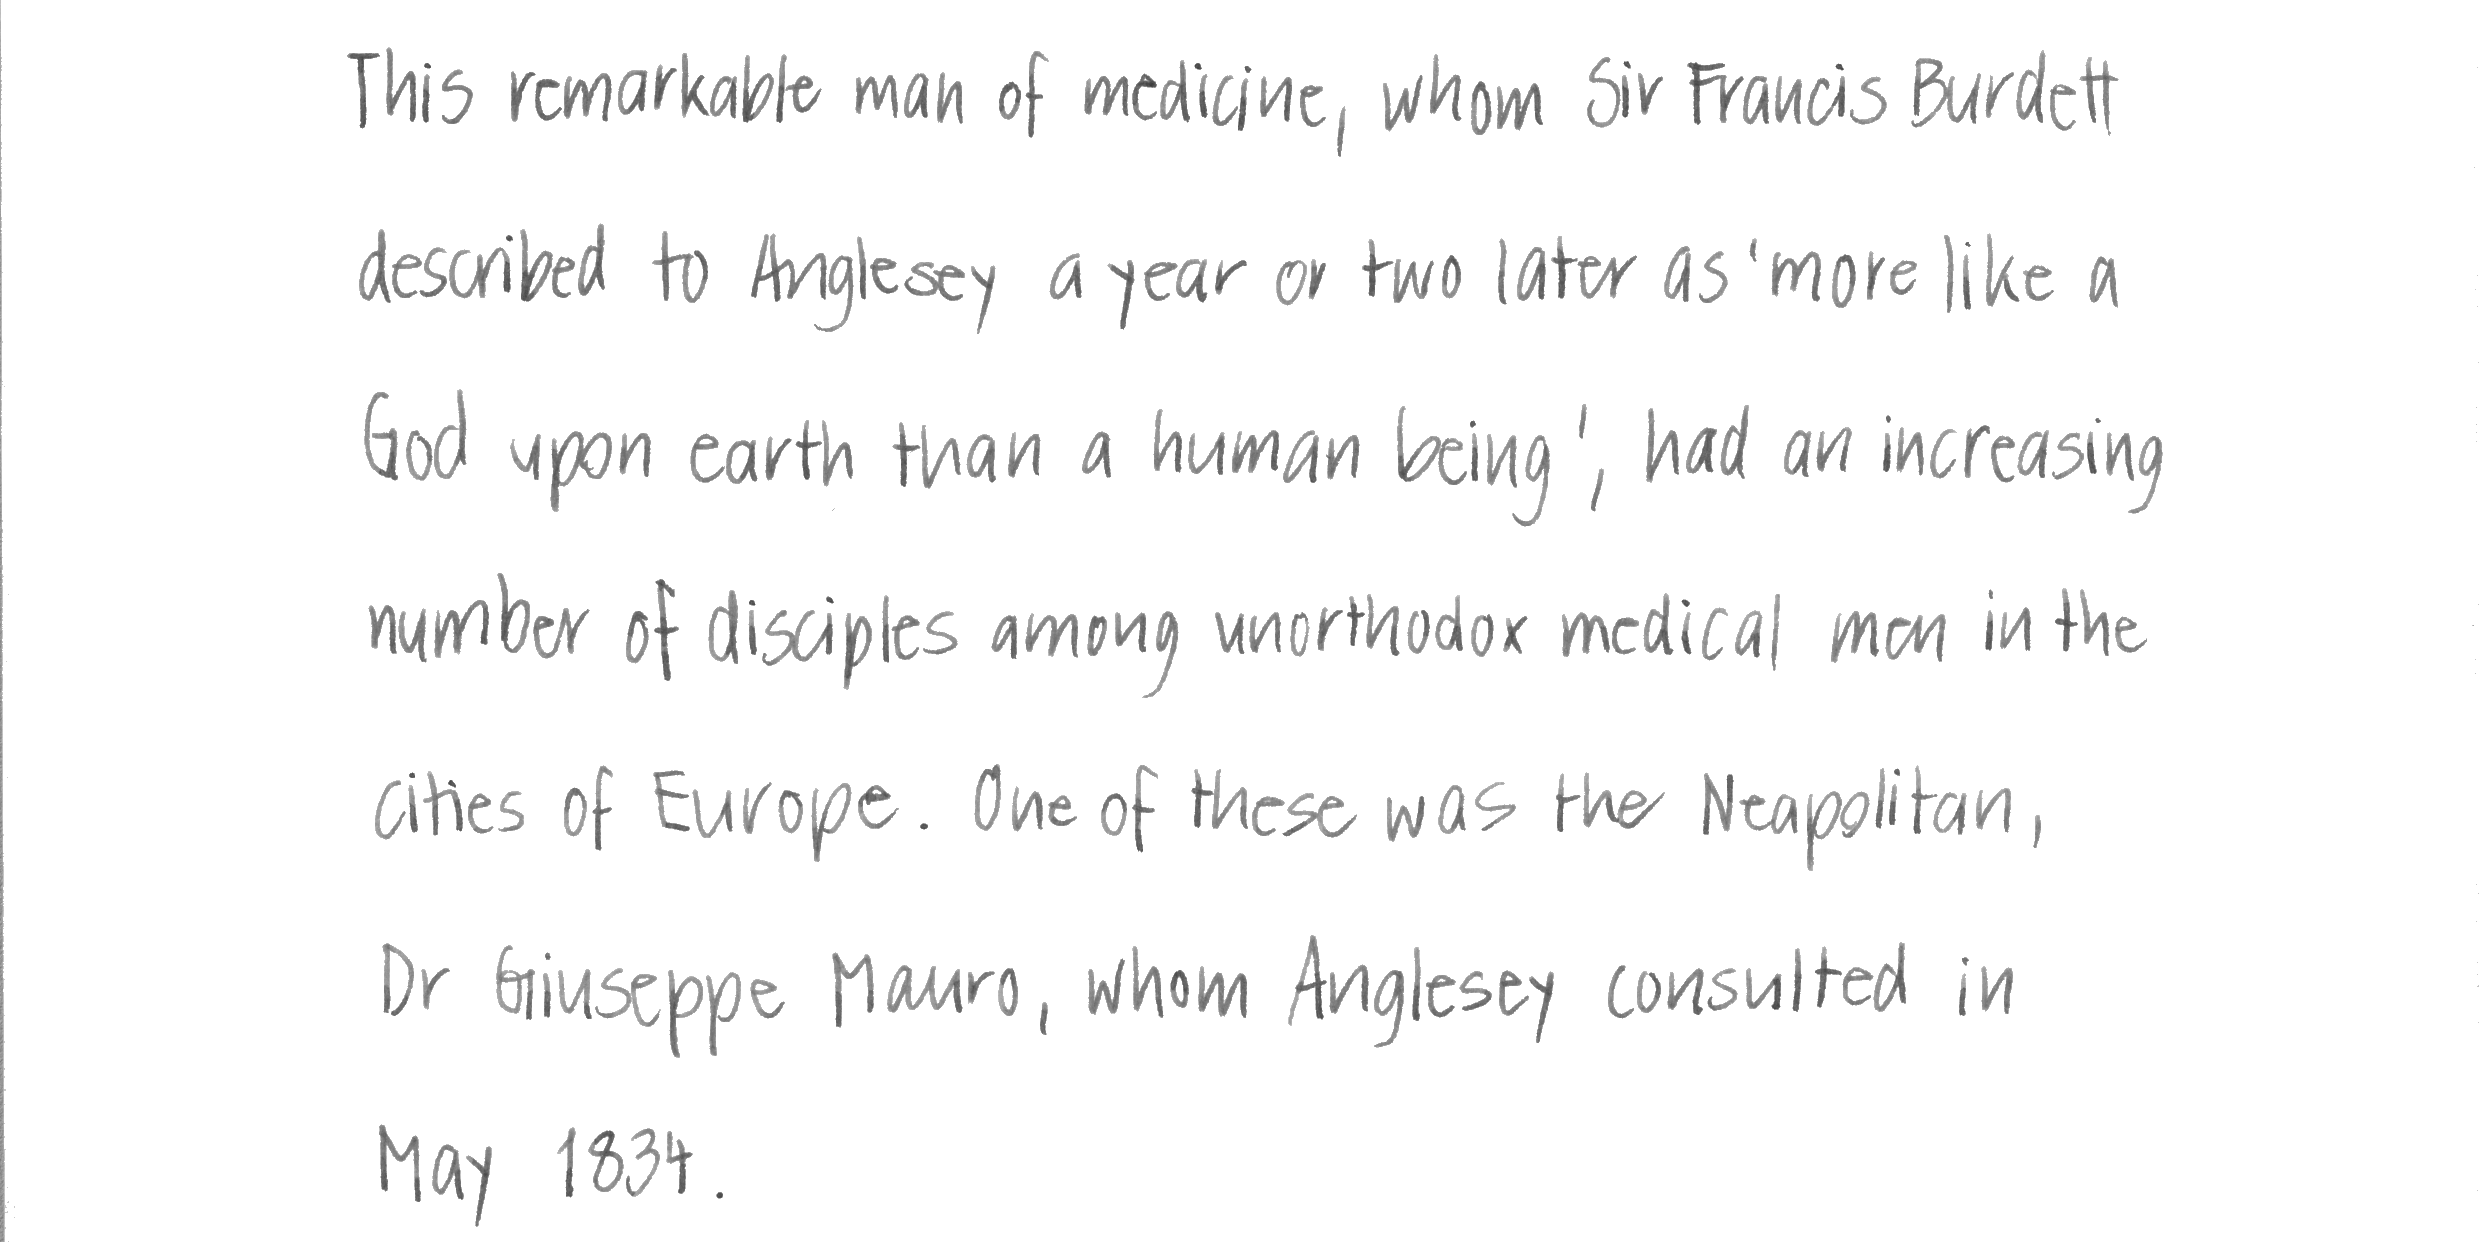 This remarkable man of medicine, whom Sir Francis Burdett
described to Anglesey a year or two later as 'more like a
God upon earth than a human being', had an increasing
number of disciples among unorthodox medical men in the
cities of Europe. One of these was the Neapolitan,
Dr Giuseppe Mauro, whom Anglesey consulted in
May 1834.